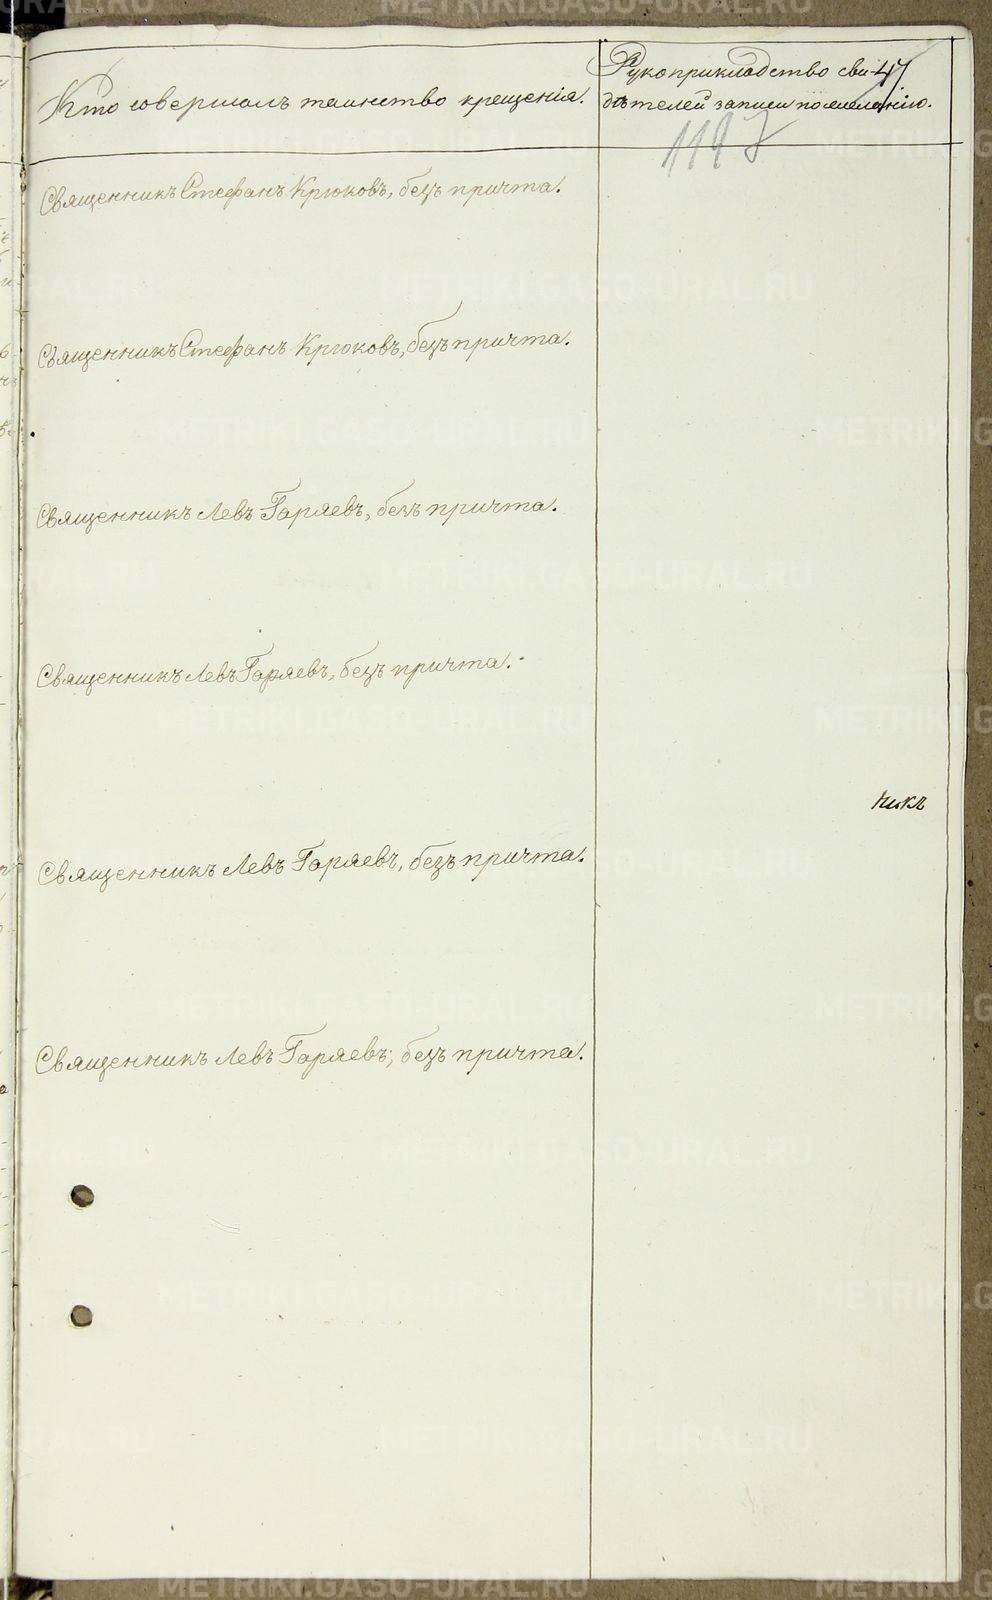 Кто совершалъ таинство крещенія.
Рукоприкладство сви-
дѣтелей записи по желанію.
47
1187
Священникъ Стефанъ Крюковъ, безъ причта.
Священникъ Стефанъ Крюковъ, безъ причта.
Священникъ Левъ Гаряевъ, безъ причта.
Священникъ Левъ Гаряевъ, безъ причта.
Священникъ Левъ Гаряевъ, безъ причта.
Священникъ Левъ Гаряевъ, безъ причта.
METRIKI.GASO-URAL.RU